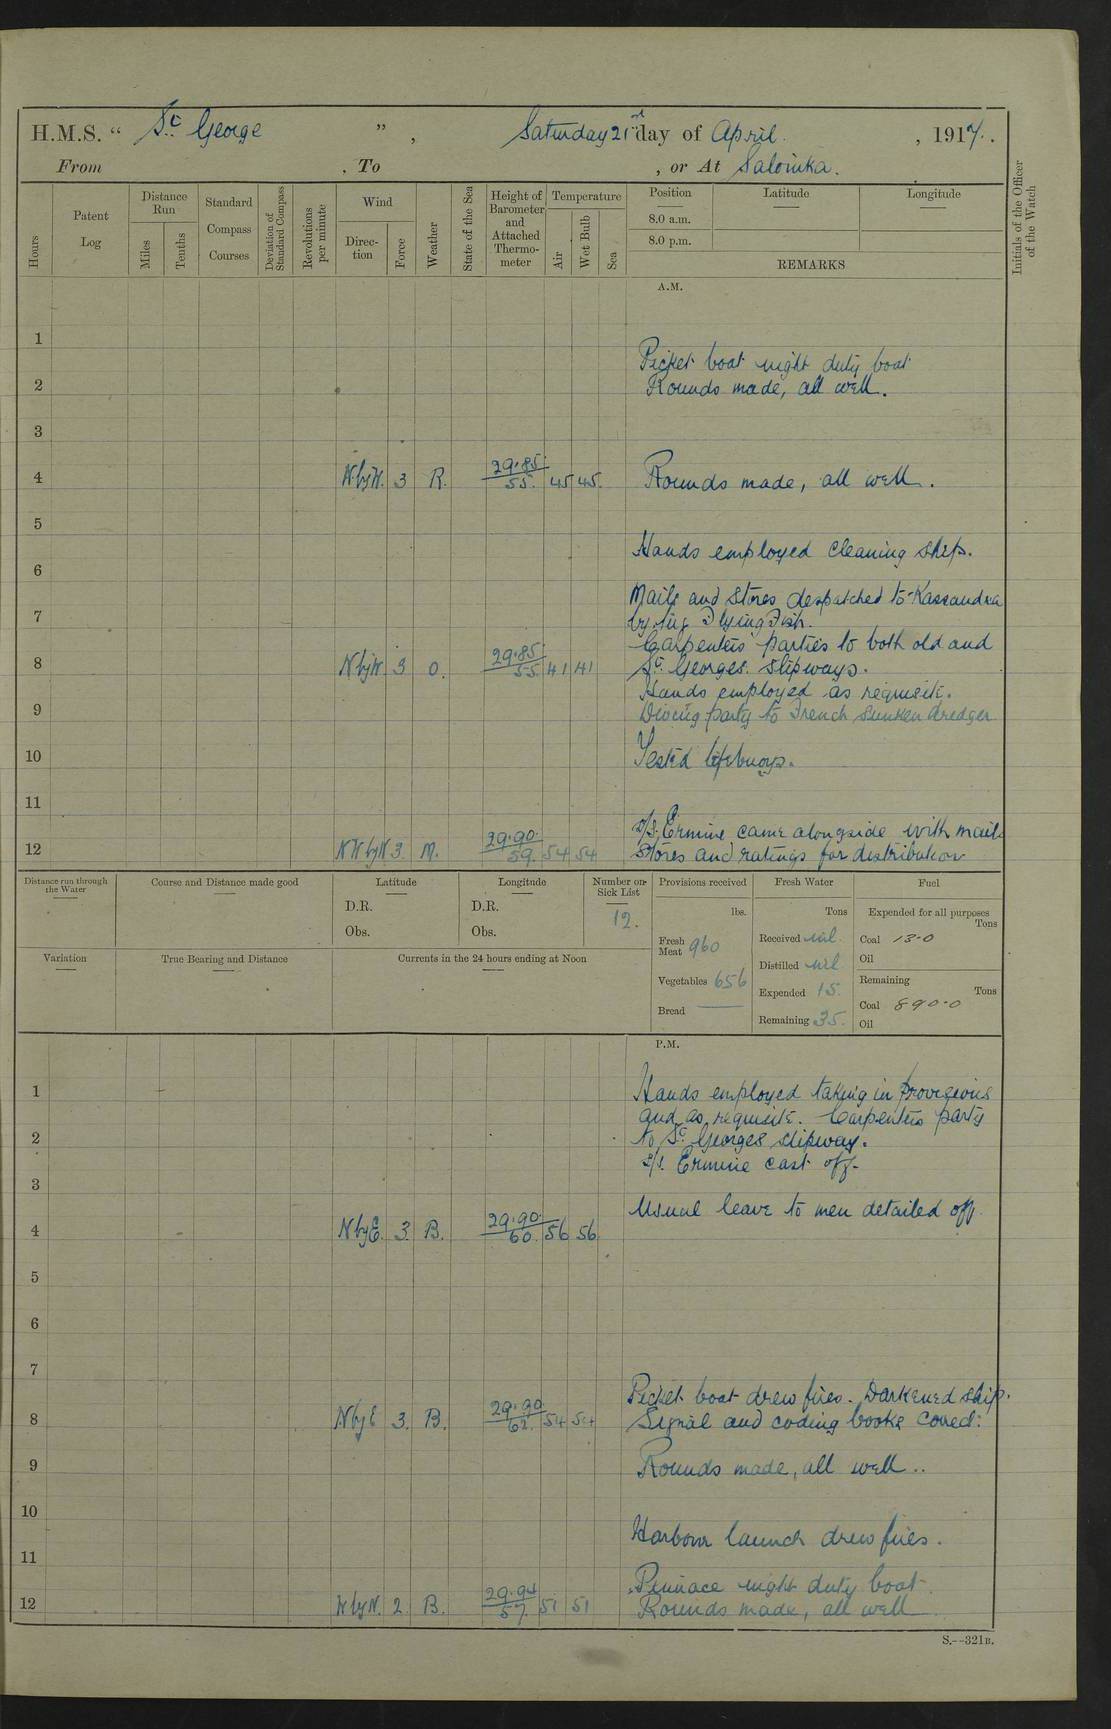 H.M.S. " St George ", Saturday 21st day of April, 1917.
From , To , or At Salonika.
Hours
Patent Log
Distance Run
Miles
Tenths
Standard Compass Courses
Deviation of Standard Compass
Revolutions per minute
Wind
Direction
Force
Weather
State of the Sea
Height of Barometer and Attached Thermometer
Temperature
Air
Wet Bulb
Sea
Position
8.0 a.m.
8.0 p.m.
Latitude
Longitude
REMARKS
Initials of the Officer of the Watch
A.M.
1
Picket boat night duty boat
2 Rounds made, all well.
3
4 N.byW. 3 R. 29.85/55. 45 45. Rounds made, all well.
5
Hands employed cleaning ship.
6
Mails and stores despatched to Kassandra
7 by tug Flying Fish.
Carpenters parties to both old and
8 NbyW. 3 O. 29.85/55 41 41 St. Georges. slipways.
Hands employed as requisite.
9 Diving party to French sunken dredger
10 Tested lifebuoys.
11
s/s. Ermine came alongside with mails
12 NW byN 3. M. 29.90./59. 54 54 stores and ratings for distribution
Distance run through the Water
Course and Distance made good
Latitude
D.R.
Obs.
Longitude
D.R.
Obs.
Number on Sick List
12.
Provisions received
lbs.
Fresh Meat 960
Vegetables 656
Bread
Fresh Water
Tons
Received nil
Distilled nil
Expended 15.
Remaining 35.
Fuel
Expended for all purposes
Tons
Coal 13.0
Oil
Remaining
Tons
Coal 890.0
Oil
Variation
True Bearing and Distance
Currents in the 24 hours ending at Noon
P.M.
1 Hands employed taking in provisions
and as requisite. Carpenters party
2 to St Georges slipway.
s/s. Ermine cast off.
3
Usual leave to men detailed off
4 NbyE. 3. B. 29.90./60. 56 56
5
6
7
Picket boat drew fires. Darkened ship.
8 NbyE 3. B. 29.90/62. 54 54 Signal and coding books cored:
9 Rounds made, all well..
10
Harbour launch drew fires.
11
Pinnace night duty boat.
12 NbyW. 2. B. 29.94/57. 51 51 Rounds made, all well
S.--321B.